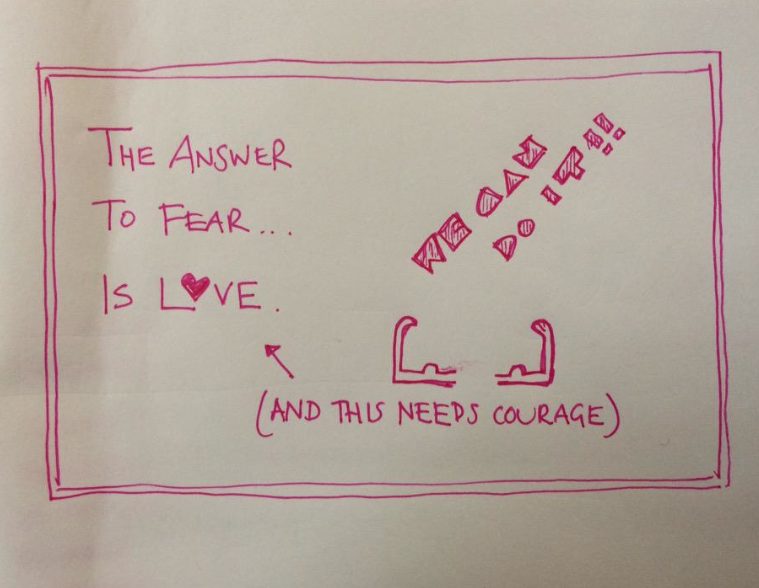 THE ANSWER
TO FEAR...
IS L♥VE.
(AND THIS NEEDS COURAGE)
WE CAN
DO IT!!